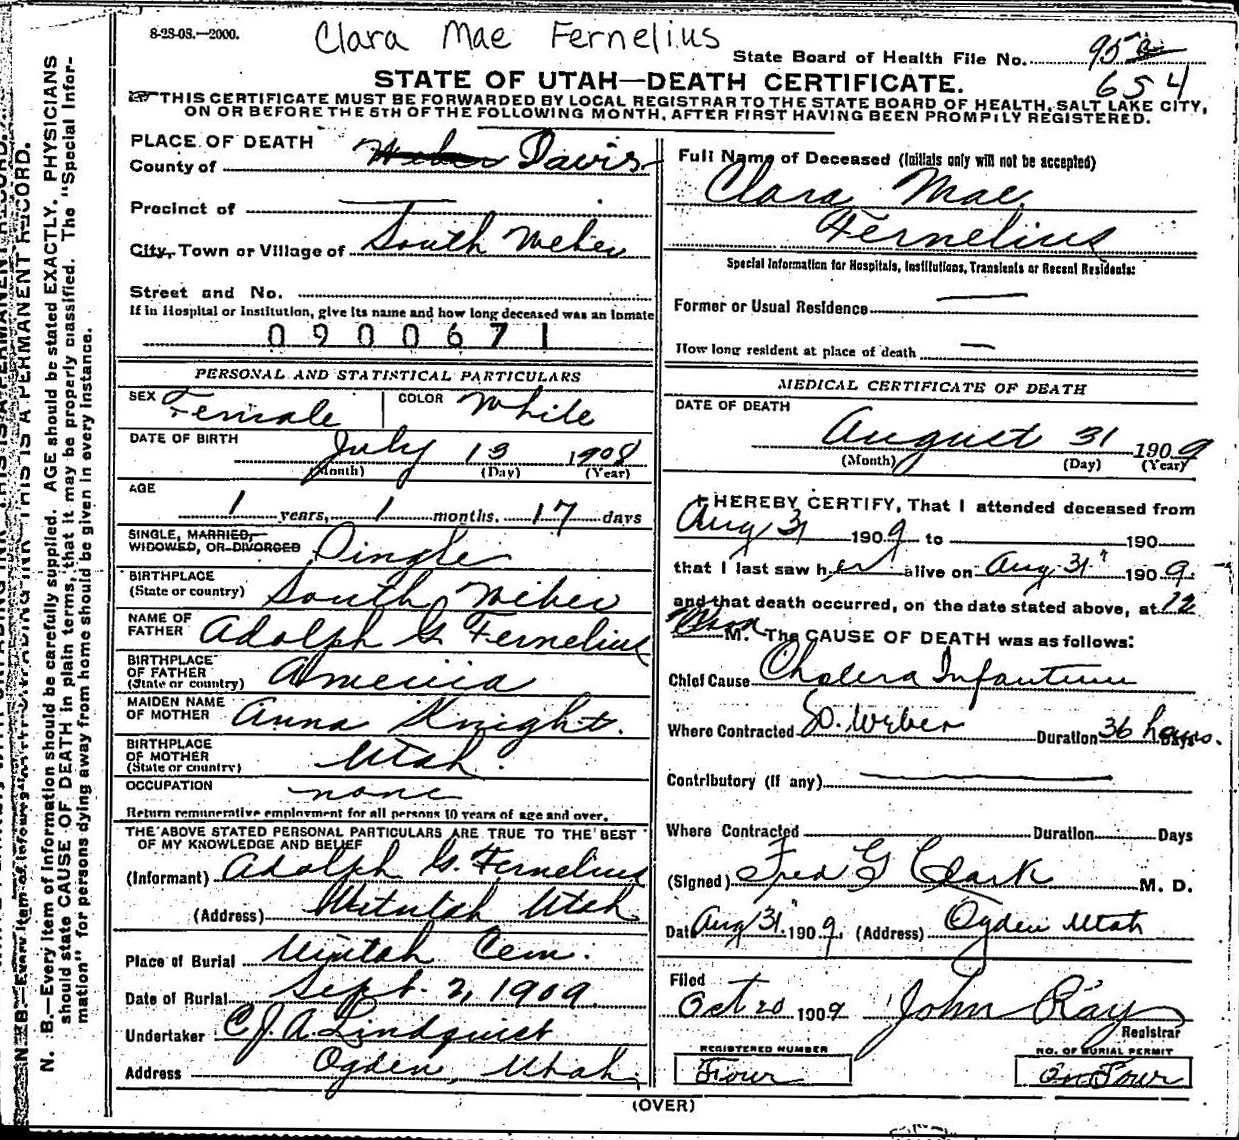 8-28-08.—2000.
Clara Mae Fernelius
State Board of Health File No. 95
654
STATE OF UTAH—DEATH CERTIFICATE.
THIS CERTIFICATE MUST BE FORWARDED BY LOCAL REGISTRAR TO THE STATE BOARD OF HEALTH, SALT LAKE CITY,
ON OR BEFORE THE 5TH OF THE FOLLOWING MONTH, AFTER FIRST HAVING BEEN PROMPTLY REGISTERED.
PLACE OF DEATH
County of Weber Davis
Precinct of
City, Town or Village of South Weber
Street and No.
If in Hospital or Institution, give its name and how long deceased was an inmate
0900671
PERSONAL AND STATISTICAL PARTICULARS
SEX Female COLOR White
DATE OF BIRTH July 13 1908
(Month) (Day) (Year)
AGE
1 years, 1 months. 17 days
SINGLE, MARRIED,
WIDOWED, OR DIVORCED Single
BIRTHPLACE
(State or country) South Weber
NAME OF
FATHER Adolph G. Fernelius
BIRTHPLACE
OF FATHER
(State or country) America
MAIDEN NAME
OF MOTHER Anna Knight.
BIRTHPLACE
OF MOTHER
(State or country) Utah.
OCCUPATION none
Return remunerative employment for all persons 10 years of age and over.
THE ABOVE STATED PERSONAL PARTICULARS ARE TRUE TO THE BEST
OF MY KNOWLEDGE AND BELIEF
(Informant) Adolph G. Fernelius
(Address) Utah
Place of Burial Uintah Cem.
Date of Burial Sept. 2, 1909.
Undertaker C.J.A. Lindquist
Address Ogden, Utah.
Full Name of Deceased (Initials only will not be accepted)
Clara Mae
Fernelius
Special Information for Hospitals, Institutions, Transients or Recent Residents:
Former or Usual Residence
How long resident at place of death
MEDICAL CERTIFICATE OF DEATH
DATE OF DEATH
August 31 1909
(Month) (Day) (Year)
I HEREBY CERTIFY, That I attended deceased from
Aug 31 1909 to 190
that I last saw her alive on Aug 31 1909.
and that death occurred, on the date stated above, at 12
Noon M. The CAUSE OF DEATH was as follows:
Chief Cause Cholera Infantum
Where Contracted So. Weber Duration 36 hours. Days
Contributory (If any)
Where Contracted Duration Days
(Signed) Fred G Clark M. D.
Date Aug 31. 1909. (Address) Ogden Utah
Filed
Oct 20 1909 John Ray
Registrar
REGISTERED NUMBER
Four
NO. OF BURIAL PERMIT
Four
(OVER)
N. B.—Every item of information should be carefully supplied. AGE should be stated EXACTLY. PHYSICIANS
should state CAUSE OF DEATH in plain terms, that it may be properly classified. The "Special Infor-
mation" for persons dying away from home should be given in every instance.
THIS IS A PERMANENT RECORD.